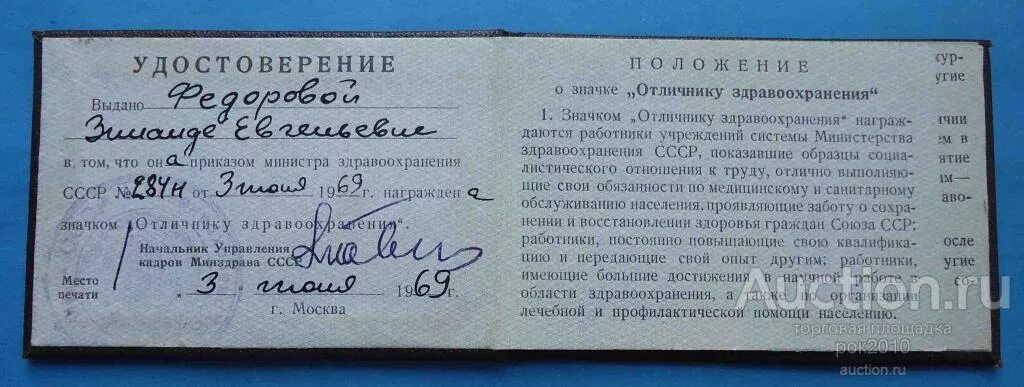 УДОСТОВЕРЕНИЕ
Выдано Федоровой
Зинаиде Евгеньевне
в том, что она приказом министра здравоохранения
СССР № 284н от 3 июля 1969 г. награждена
значком „Отличнику здравоохранения“.
Начальник Управления
кадров Минздрава СССР
Место
печати
„ 3 “ июля 1969 г.
г. Москва
ПОЛОЖЕНИЕ
о значке „Отличнику здравоохранения“
1. Значком „Отличнику здравоохранения“ награж-
даются работники учреждений системы Министерства
здравоохранения СССР, показавшие образцы социа-
листического отношения к труду, отлично выполняю-
щие свои обязанности по медицинскому и санитарному
обслуживанию населения, проявляющие заботу о сохра-
нении и восстановлении здоровья граждан Союза ССР;
работники, постоянно повышающие свою квалифика-
цию и передающие свой опыт другим; работники,
имеющие большие достижения в научной работе в
области здравоохранения, а также по организации
лечебной и профилактической помощи населению.
сур-
угие
ичии
ем в
ятие
им—
аво-
осле
угие
со-
Auction.ru
торговая площадка
рок2010
auction.ru